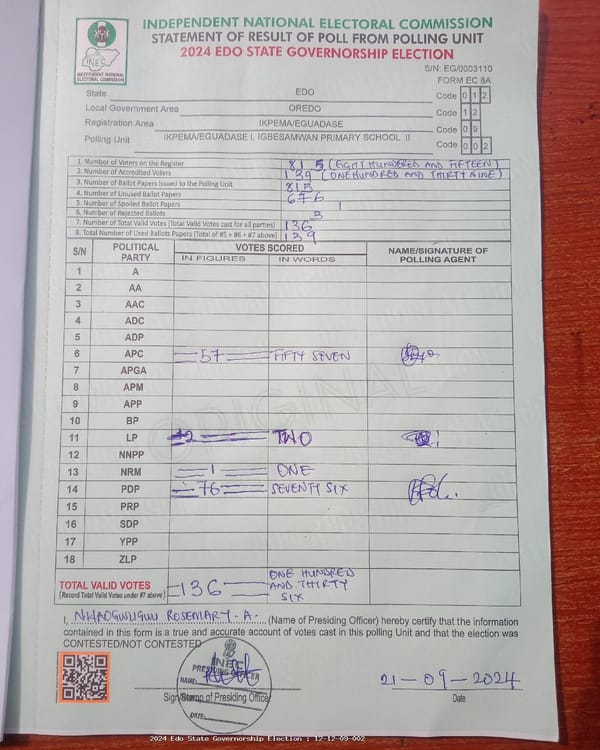 INDEPENDENT NATIONAL ELECTORAL COMMISSION
STATEMENT OF RESULT OF POLL FROM POLLING UNIT
2024 EDO STATE GOVERNORSHIP ELECTION
INEC
INDEPENDENT NATIONAL ELECTORAL COMMISSION
S/N: EG/0003110
FORM EC 8A
State EDO Code 0 1 2
Local Government Area OREDO Code 1 2
Registration Area IKPEMA/EGUADASE Code 0 9
Polling Unit IKPEMA/EGUADASE I, IGBESAMWAN PRIMARY SCHOOL II Code 0 0 2
1. Number of Voters on the Register 815 (EIGHT HUNDRED AND FIFTEEN)
2. Number of Accredited Voters 139 (ONE HUNDRED AND THIRTY NINE)
3. Number of Ballot Papers Issued to the Polling Unit 815
4. Number of Unused Ballot Papers 676
5. Number of Spoiled Ballot Papers 1
6. Number of Rejected Ballots 3
7. Number of Total Valid Votes (Total Valid Votes cast for all parties) 136
8. Total Number of Used Ballots Papers (Total of #5 + #6 + #7 above) 139
S/N POLITICAL PARTY VOTES SCORED NAME/SIGNATURE OF POLLING AGENT
IN FIGURES IN WORDS
1 A
2 AA
3 AAC
4 ADC
5 ADP
6 APC 57 FIFTY SEVEN
7 APGA
8 APM
9 APP
10 BP
11 LP 2 TWO
12 NNPP
13 NRM 1 ONE
14 PDP 76 SEVENTY SIX
15 PRP
16 SDP
17 YPP
18 ZLP
ORIGINAL
TOTAL VALID VOTES 136 ONE HUNDRED AND THIRTY SIX
(Record Total Valid Votes under #7 above)
I, ROSEMARY. A. (Name of Presiding Officer) hereby certify that the information
contained in this form is a true and accurate account of votes cast in this polling Unit and that the election was
CONTESTED/NOT CONTESTED
INEC
PRESIDING OFFICER
NAME:
DATE:
Sign/Stamp of Presiding Officer
21-09-2024
Date
2024 Edo State Governorship Election : 12-12-09-002